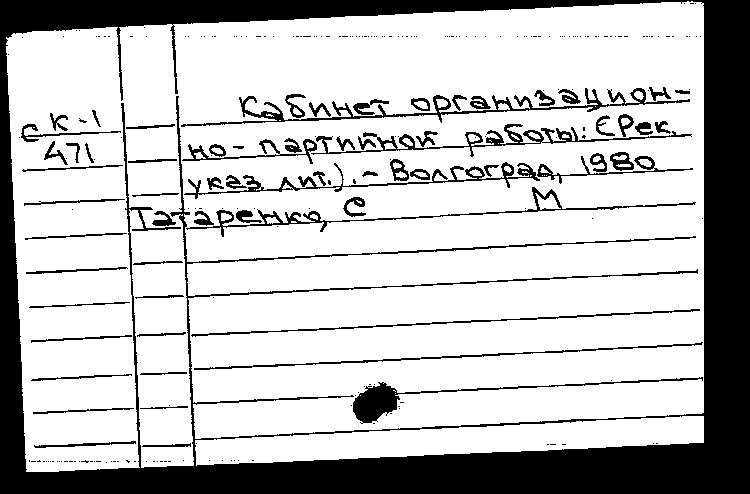 Кабинет организацион-
с К-1
471
но-партийной работы: (Рек.
указ. лит.). - Волгоград, 1980
Татаренко, С
М